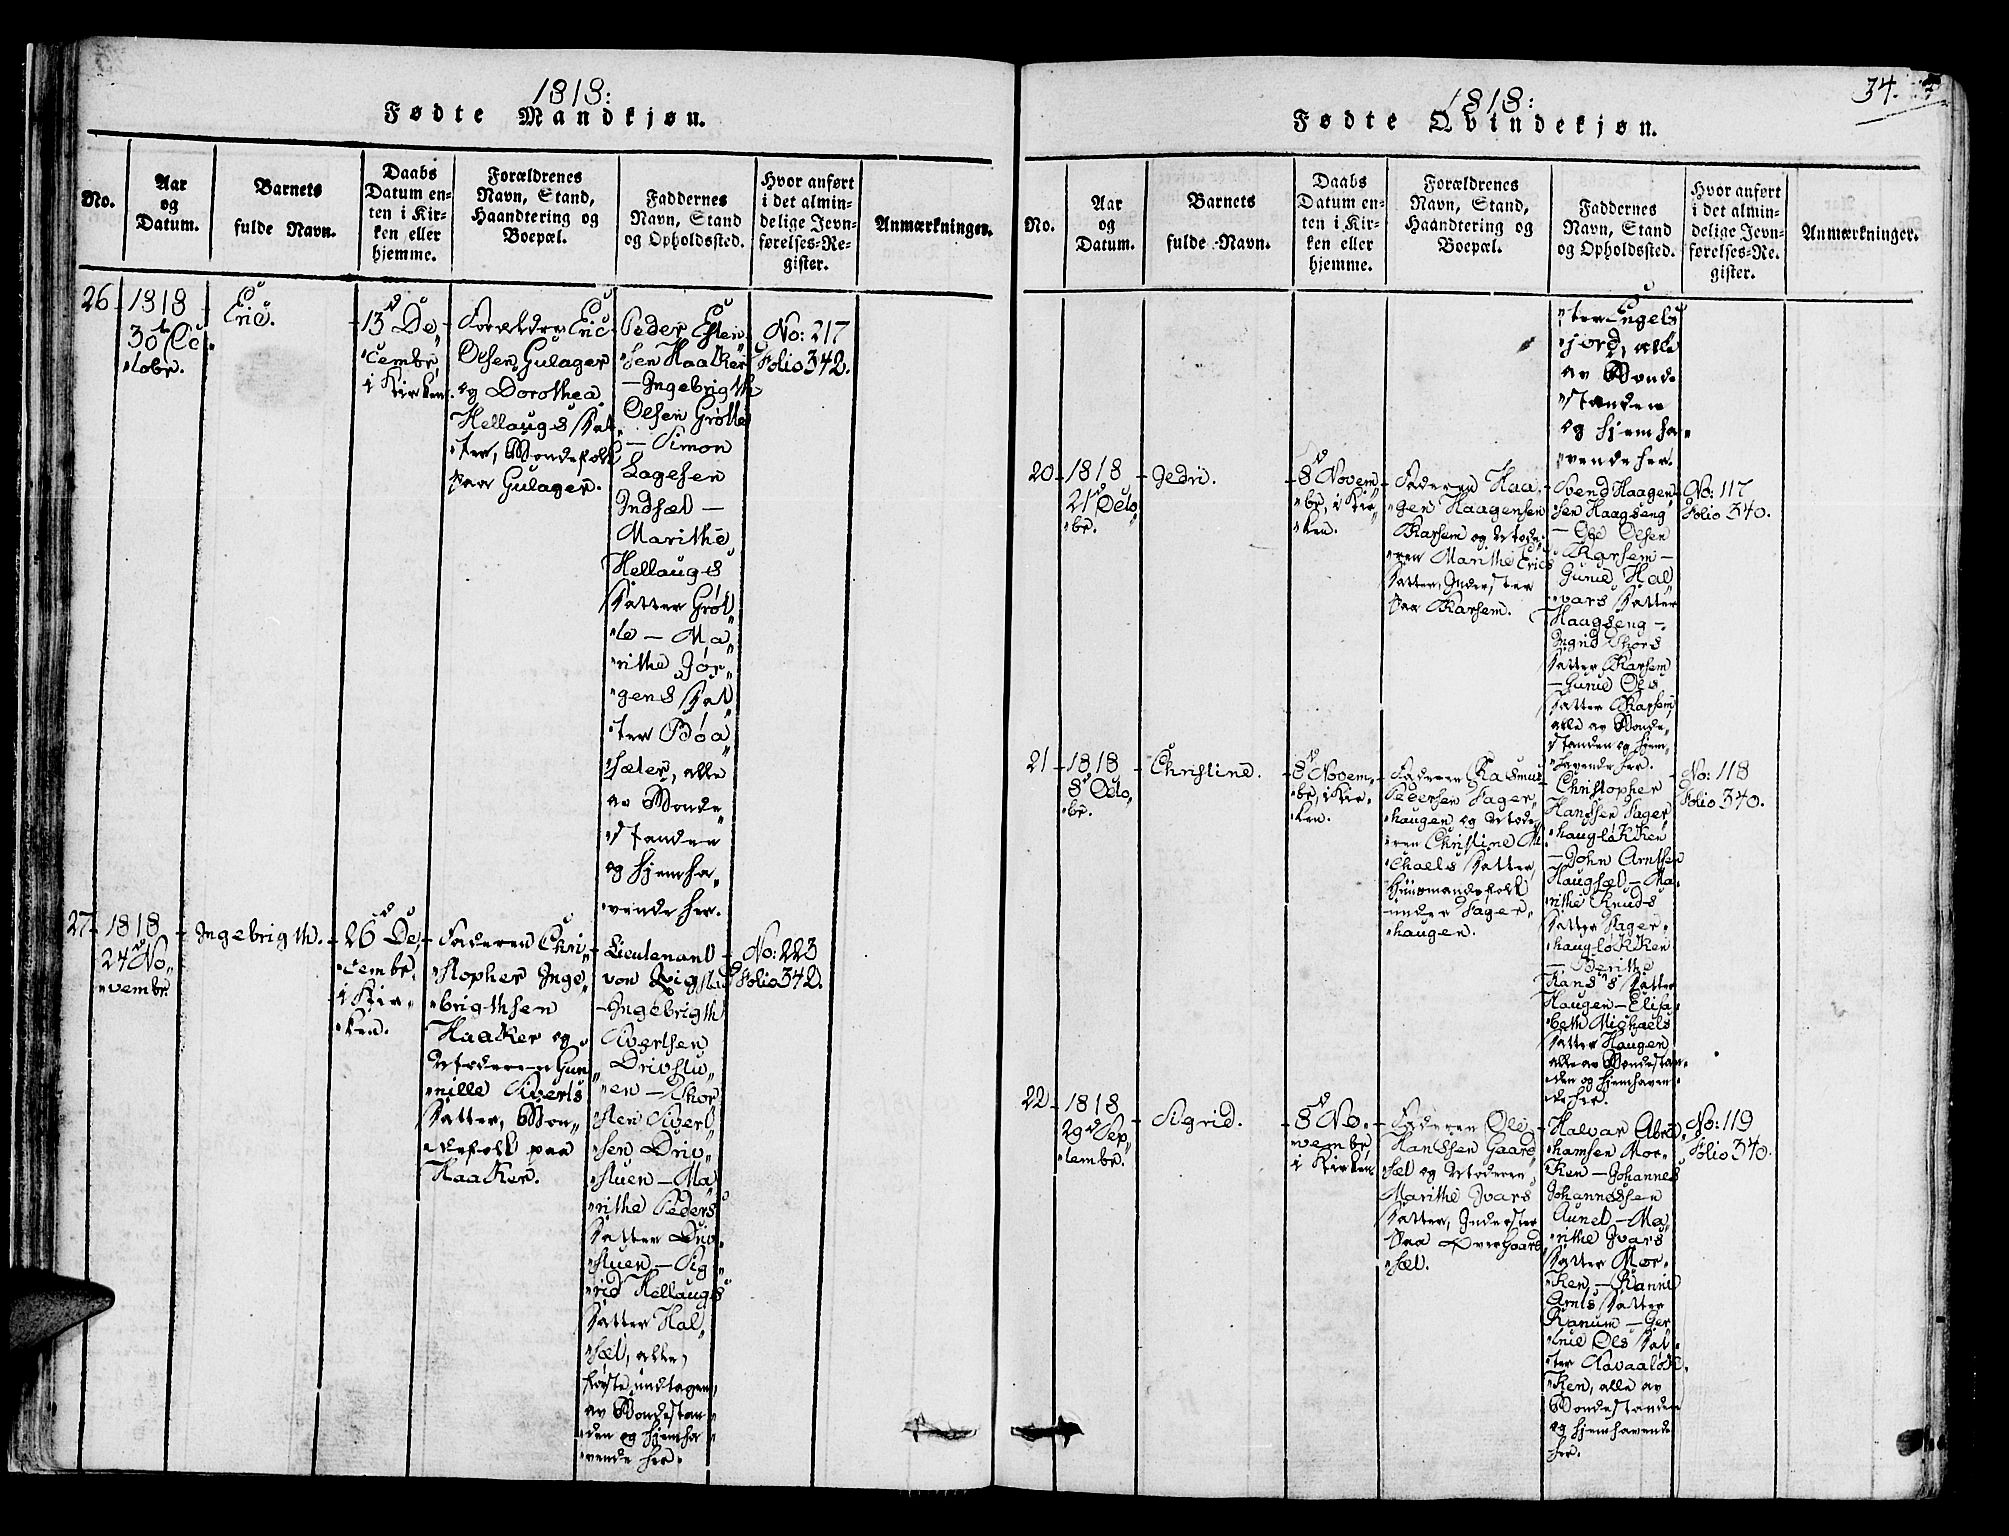 1818:
Fødte Mandkjøn.
No.
Aar
og
Datum.
Barnets
fulde Navn.
Daabs
Datum en-
ten i Kir-
ken eller
hjemme.
Forældrenes
Navn, Stand,
Haandtering og
Boepæl.
Faddernes
Navn, Stand
og Opholdssted.
Hvor anført
i det almin-
delige Jevn-
førelses-Re-
gister.
Anmærkninger.
26
1818
30te Oc
tobr.
Eric.
13d De
cembr,
i Kirken.
Forældre Eric
Olsen Gulager
og Dorothea
Hellaugs Dat
ter, Bondefolk
paa Gulager.
Peder Esten
sen Haaker
— Ingebrigth
Olsen Grötte
— Simon
Lagesen
Indset —
Marithe
Hellaugs
Datter Gröt
te — Ma
rithe Jör
gens Dat
ter Böa
sæter, alle
av Bonde
standen
og hjemha
vende her.
No: 217
Folio 342.
27
1818
24d No
vembr.
Ingebrigth.
26d De
cembr.
i Kir
ken.
Faderen Chri
stopher Inge
brigthsen
Haaker og
Moderen Gun
nille Siverts
Datter, Bon
defolk paa
Haaker.
Lieutenant
— Ingebrigth
Sivertsen
Drivstu
en — Thor
sten Sivert
sen Driv
stuen — Ma
rithe Peders
Datter Driv
stuen — Sig
rid Hellaugs
Datter Hal
sæt, alle,
første undtagen
av Bondestan
den og hjemha
vende her.
No: 223
Folio 342.
1818:
34.
Fødte Qvindekjøn.
No.
Aar
og
Datum.
Barnets
fulde Navn.
Daabs
Datum en-
ten i Kir-
ken eller
hjemme.
Forældrenes
Navn, Stand,
Haandtering og
Boepæl.
Faddernes
Navn, Stand
og Opholdssted.
Hvor anført
i det almin-
delige Jevn-
førelses-Re-
gister.
Anmærkninger.
ter Engels
jord, alle
av Bonde
standen
og hjemha
vende her.
20
1818
21d Octo
br.
Jedri.
8d Novem
br, i Kir
ken.
Faderen Haa
gen Haagensen
Karsem og Mode
ren Marithe Erics
Datter, Inderster
paa Karsem.
Svend Haagen
sen Haagseng
— Ole Olsen
Karsem —
Guru Hal
vars Datter
Haagseng —
Ingrid Thors
Datter Karsem
— Guru Ols
Datter Karsem,
alle av Bonde
standen og hjem
havende her.
No: 117
Folio 340.
21
1818
8d Octo
br.
Christine.
8d Novem
br, i Kir
ken.
Faderen Rasmus
Pedersen Fager
haugen og Mode
ren Christine Mi
chaels Datter,
Huusmandsfolk
under Fager
haugen.
Christopher
Hanssen Fager
haugløkken
— John Arntsen
Haugsæt — Ma
rithe Knuds
Datter Fager
haugløkken
— Berithe
Hans's Datter
Haugen — Elisa
beth Michaels
Datter Haugen
alle av Bondestan
den og hjemhaven
de her.
No: 118
Folio 340.
22
1818
29d Sep
tembr.
Sigrid.
8d No
vembr,
i Kirken
Faderen Ole
Hanssen Gaard
sæt og Moderen
Marithe Ivars
Datter, Inderster
paa Øver Gaard
sæt.
Halvar Abra
hamsen Mor
ken — Johannes
Johannessen
Aunet — Ma
rithe Ivars
Datter Mor
ken, — Ranni
Arnts Datter
Ranum — Ger
true Ols Dat
ter
ken, alle av
Bondestanden
og hjemhavende
her.
No: 119
Folio 340.